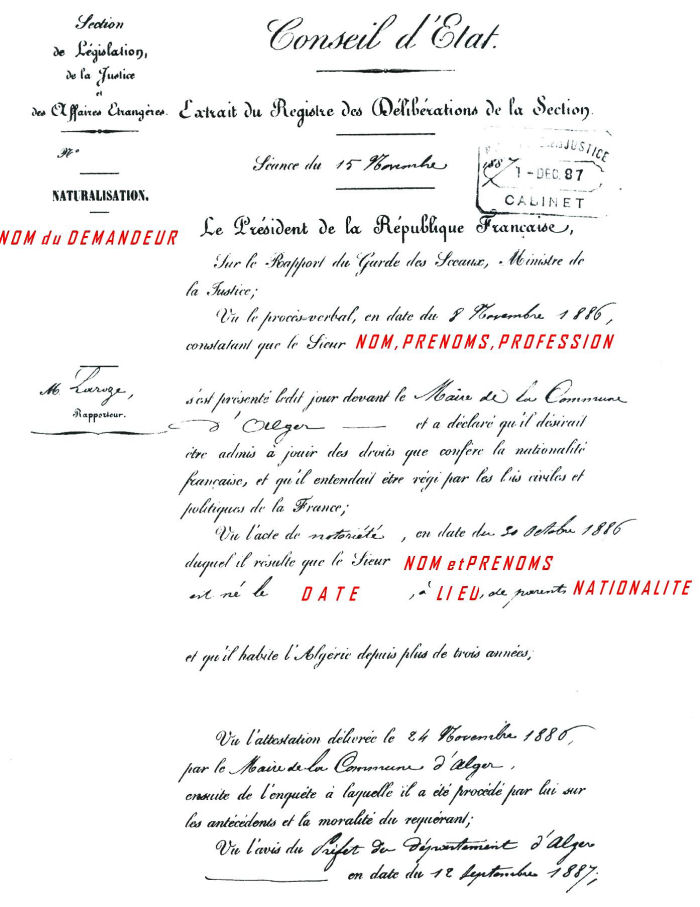 Section
de Législation,
de la Justice
et
des Affaires Etrangères.
N.º
NATURALISATION.
NOM du DEMANDEUR
Conseil d'Etat.
Extrait du Registre des Délibérations de la Section.
Séance du 15 Novembre
1887
JUSTICE
1 - DEC. 87
CABINET
Le Président de la République Française,
Sur le Rapport du Garde des Sceaux, Ministre de
la Justice;
Vu le procès-verbal, en date du 8 Novembre 1886,
constatant que le Sieur NOM, PRENOMS, PROFESSION
M. Laroze,
Rapporteur.
s'est présenté ledit jour devant le Maire de la Commune
d'Alger et a déclaré qu'il désirait
être admis à jouir des droits que confère la nationalité
française, et qu'il entendait être régi par les lois civiles et
politiques de la France;
Vu l'acte de notoriété, en date du 30 Octobre 1886
duquel il résulte que le Sieur NOM et PRENOMS
est né le DATE, à LIEU, de parents NATIONALITE
et qu'il habite l'Algérie depuis plus de trois années;
Vu l'attestation délivrée le 24 Novembre 1886,
par le Maire de la Commune d'Alger,
ensuite de l'enquête à laquelle il a été procédé par lui sur
les antécédents et la moralité du requérant;
Vu l'avis du Préfet du département d'Alger
en date du 12 Septembre 1887;